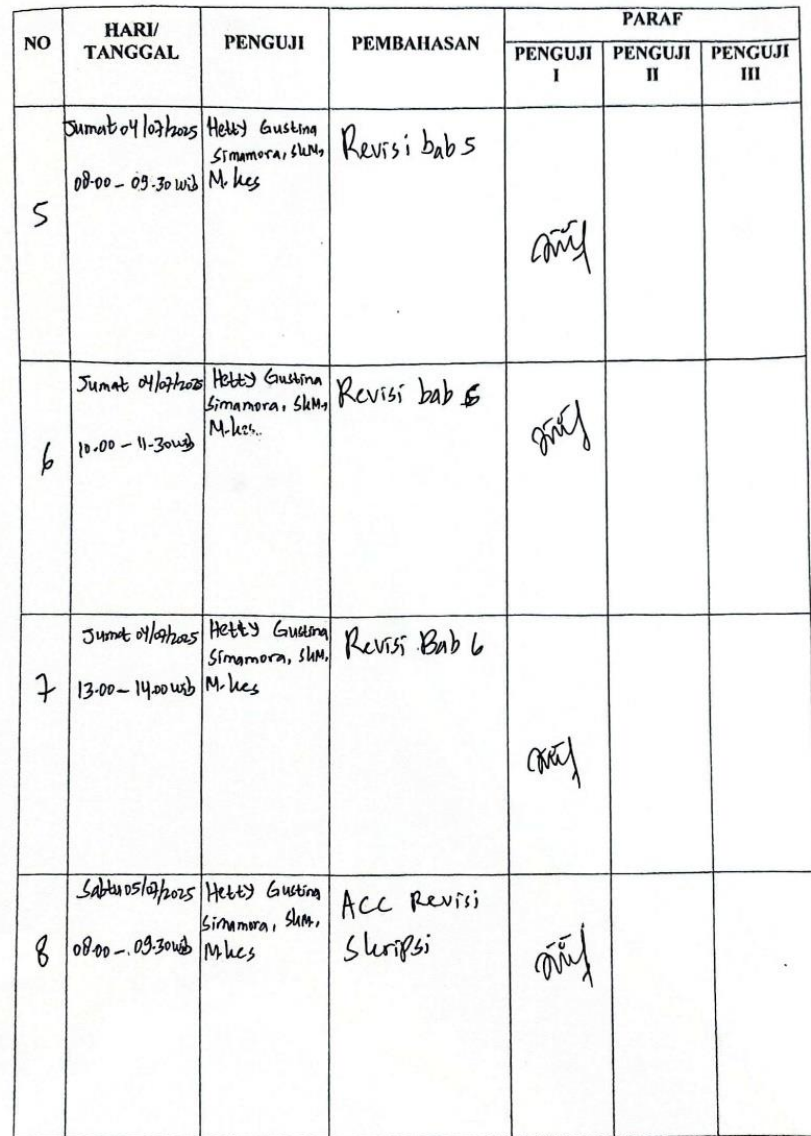 NO
HARI/
TANGGAL
PENGUJI
PEMBAHASAN
PARAF
PENGUJI
I
PENGUJI
II
PENGUJI
III
5
Jumat 04/07/2025
08.00 - 09.30 wib
Hetty Gustina
Simamora, SKM,
M.kes
Revisi bab 5
6
Jumat 04/07/2025
10.00 - 11.30 wib
Hetty Gustina
Simamora, SKM,
M.kes.
Revisi bab 5
7
Jumat 04/07/2025
13.00 - 14.00 wib
Hetty Gustina
Simamora, SKM,
M.kes
Revisi Bab 6
8
Sabtu 05/07/2025
08.00 - 09.30 wib
Hetty Gustina
Simamora, SKM,
M.kes
ACC Revisi
Skripsi